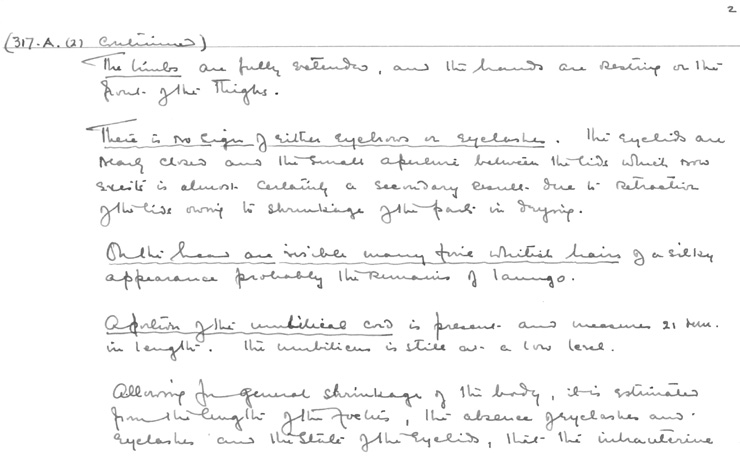 2
(317-A. (2) Continued)
The limbs are fully extended, and the hands are resting on the
front of the thighs.
There is no sign of either eyebrows or eyelashes. The eyelids are
nearly closed and the small aperture between the lids which now
exists is almost certainly a secondary result due to retraction
of the lids owing to shrinkage of the parts in drying.
On the head are visible many fine whitish hairs of a silky
appearance probably the remains of lanugo.
A portion of the umbilical cord is present and measures 21 mm.
in length. The umbilicus is still at a low level.
Allowing for general shrinkage of the body, it is estimated
from the length of the foetus, the absence of eyelashes and
eyelashes and the state of the eyelids, that the intrauterine